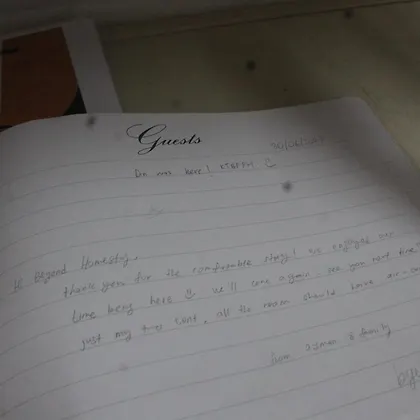 Guests
was here!
Hi Beyond Homestay,
thank you for the comfortable stay! we enjoyed our
time being here we'll come again. see you next time
just my two cent, all the room should have air-con
from ayman & family